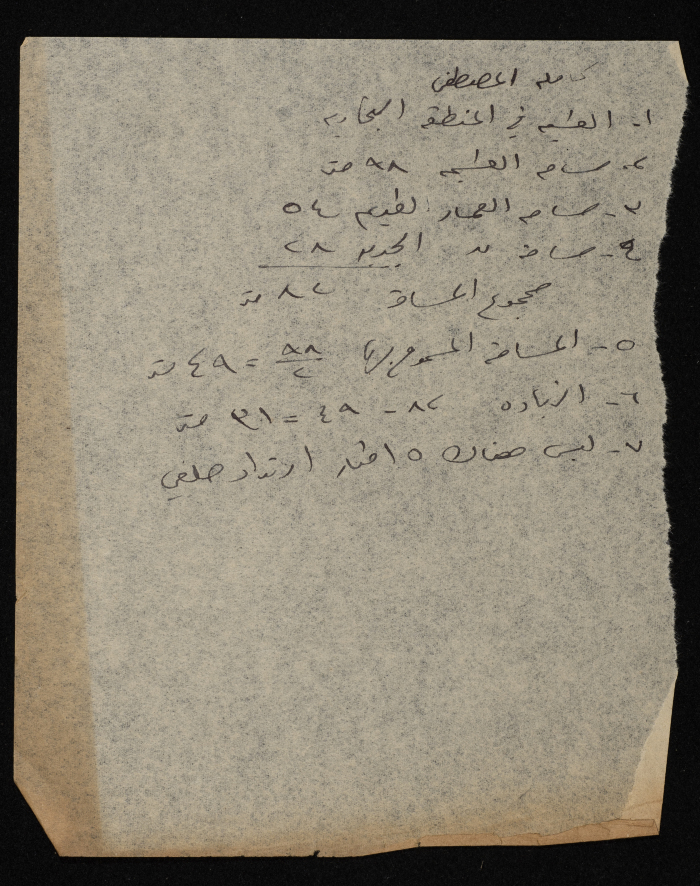 كامله المصطفى
١- القسيمه في المنطقة التجارية
٢- مساحه القسيمه ٩٨ متر
٣- مساحه العمار القديم ٥٤
٤- مساحة الجديد ٢٨
مجموع المساحة ٨٢ متر
٥- المساحة المسموح بها ٩٨/٢ = ٤٩ متر
٦- الزياده ٨٢ - ٤٩ = ٣١ متر
٧- ليس هناك ٥ امتار ارتداد خلفي